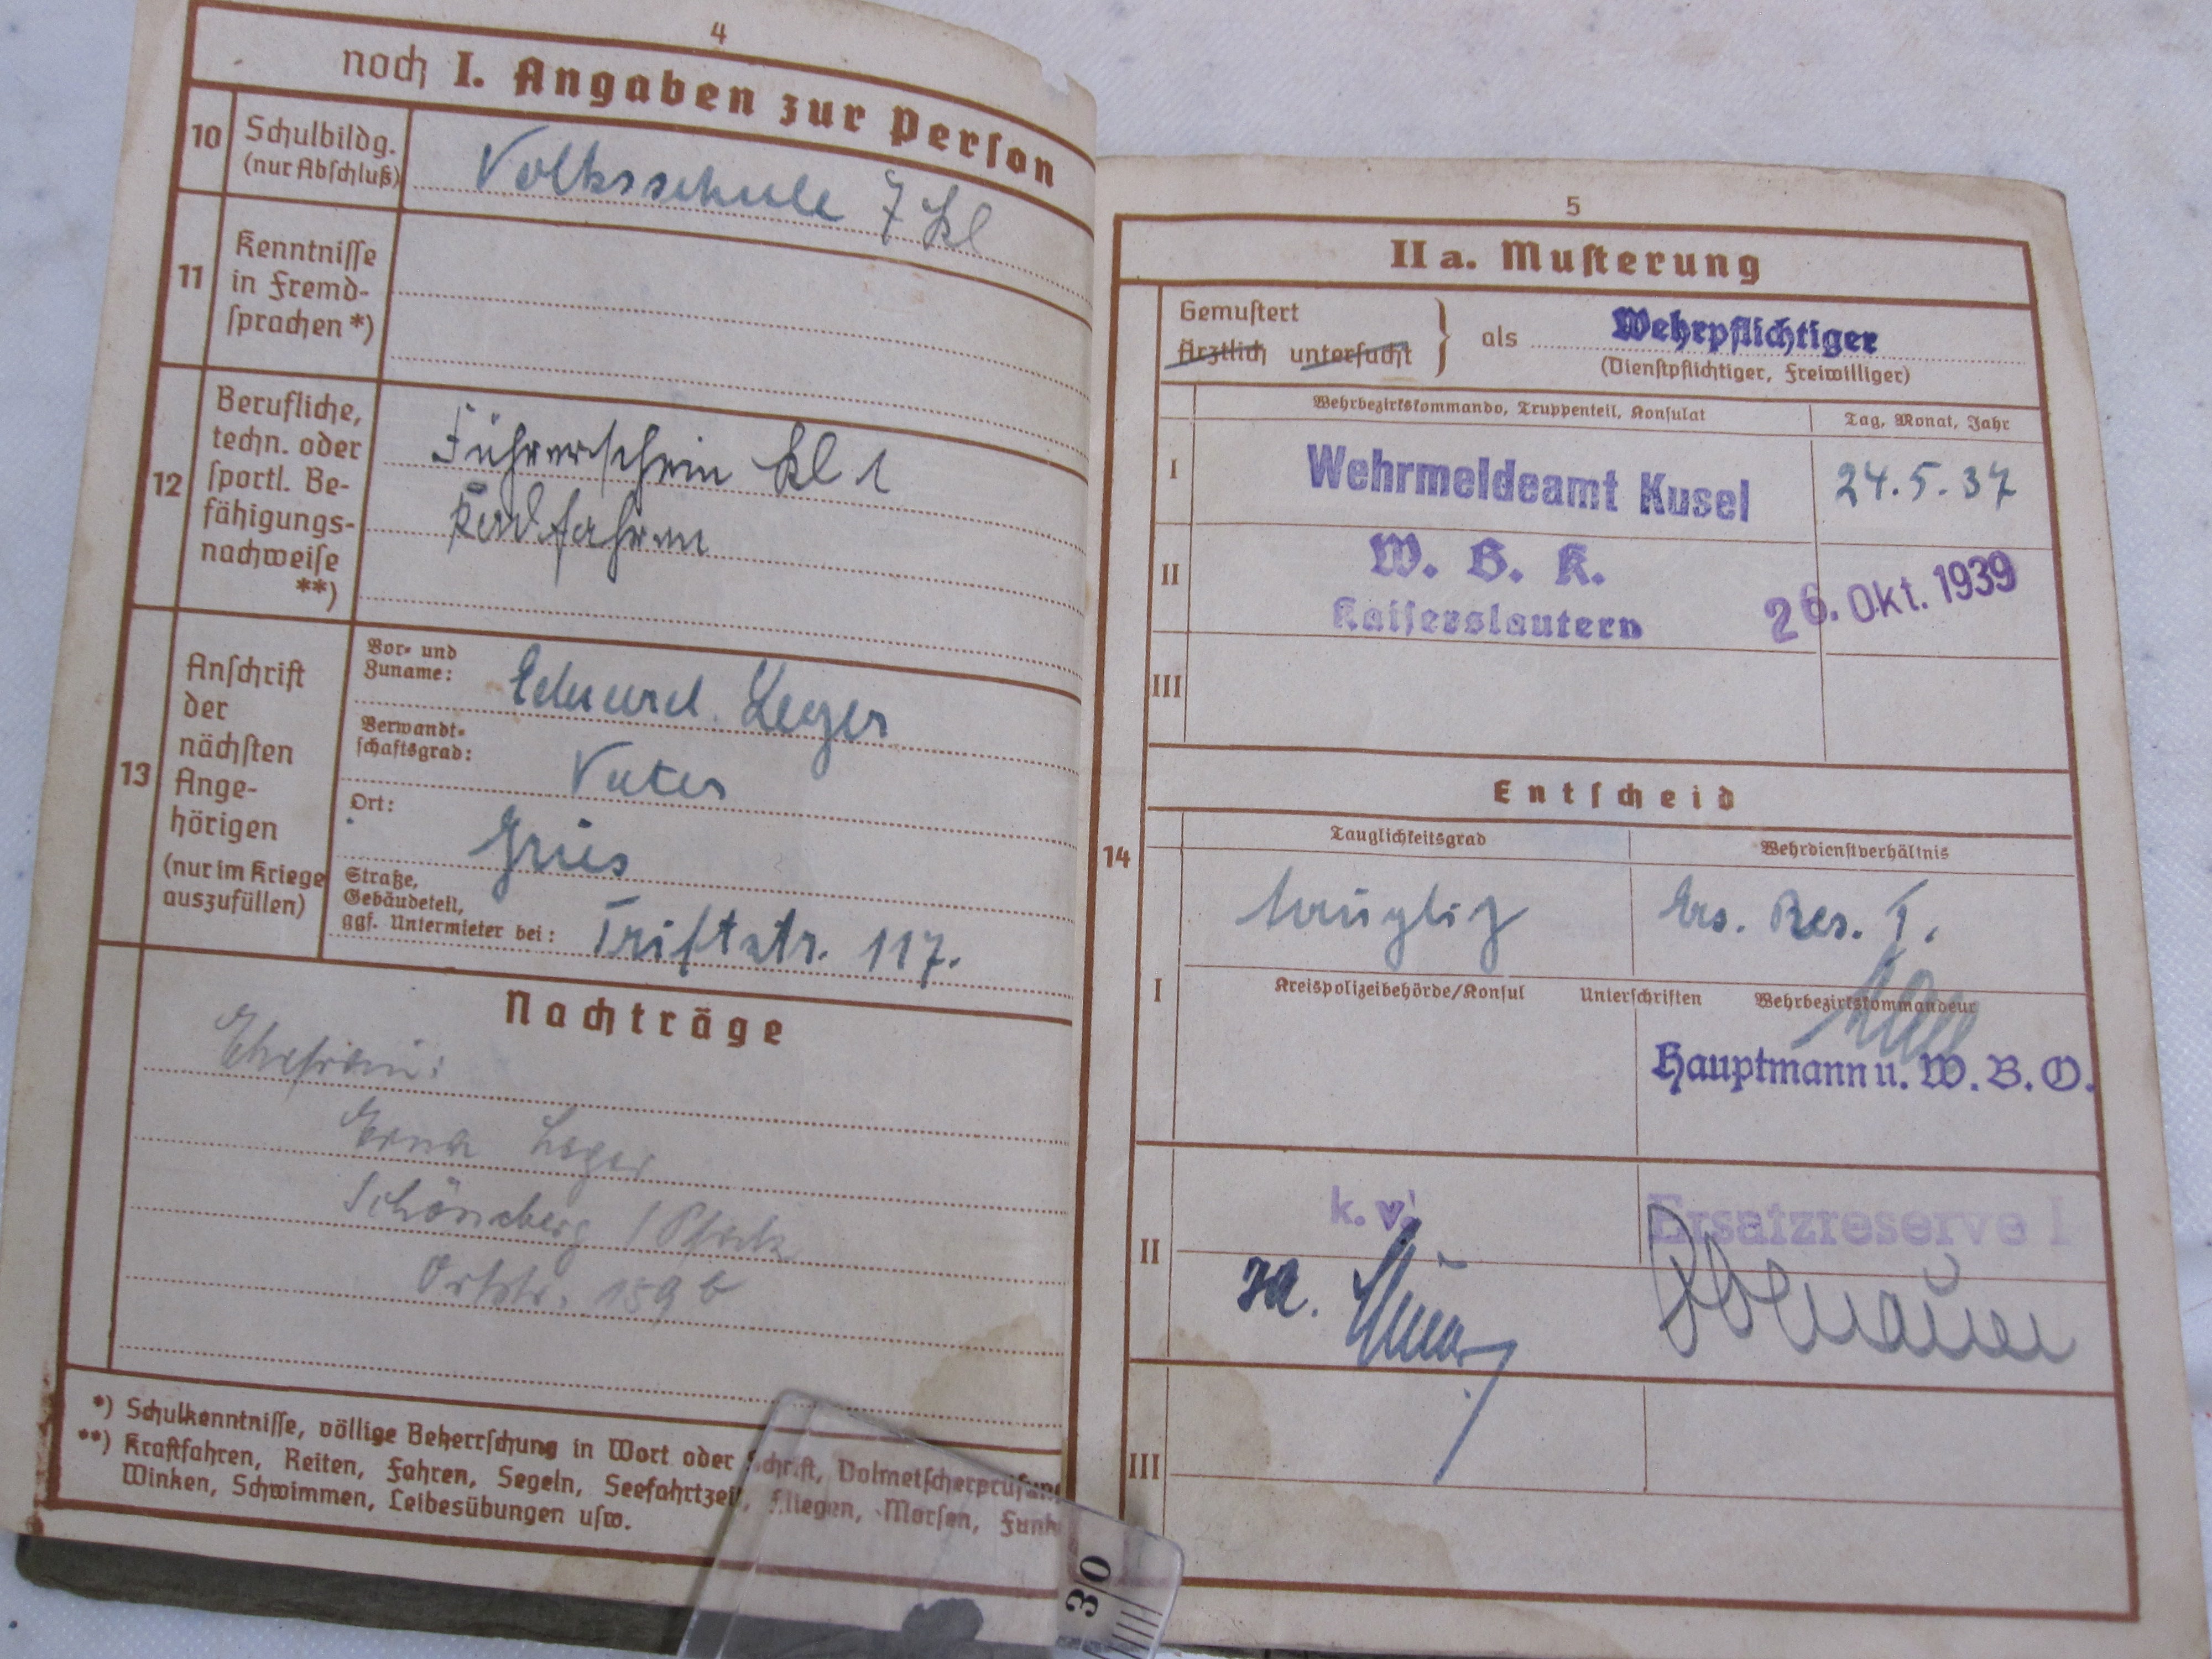 4
noch I. Angaben zur Person
10
Schulbildg.
(nur Abschluß)
Volksschule 7 Kl
11
Kenntnisse
in Fremd-
sprachen *)
12
Berufliche,
techn. oder
sportl. Be-
fähigungs-
nachweise
**)
Führerschein Kl 1
Radfahren
13
Anschrift
der
nächsten
Ange-
hörigen
(nur im Kriege
auszufüllen)
Vor- und
Zuname:
Eduard Leger
Verwandt-
schaftsgrad:
Vater
Ort:
Gries
Straße,
Gebäudeteil,
ggf. Untermieter bei:
Triftstr. 117.
Nachträge
Ehefrau:
Erna Leger
Schönenberg / Pfalz
Ortsstr. 159 b
*) Schulkenntnisse, völlige Beherrschung in Wort oder Schrift, Dolmetscherprüfung
**) Kraftfahren, Reiten, Fahren, Segeln, Seefahrtzeit, Fliegen, Morsen, Funk
Winken, Schwimmen, Leibesübungen usw.
5
II a. Musterung
Gemustert
Ärztlich untersucht
als
Wehrpflichtiger
(Dienstpflichtiger, Freiwilliger)
Wehrbezirkskommando, Truppenteil, Konsulat
Tag, Monat, Jahr
I
Wehrmeldeamt Kusel
24.5.37
II
W. B. K.
Kaiserslautern
26. Okt. 1939
III
14
Entscheid
Tauglichkeitsgrad
Wehrdienstverhältnis
I
tauglich
Ers. Res. I.
Kreispolizeibehörde/Konsul
Unterschriften
Wehrbezirkskommandeur
Hauptmann u. W. B. O.
II
k. v.
Ersatzreserve I
III
30